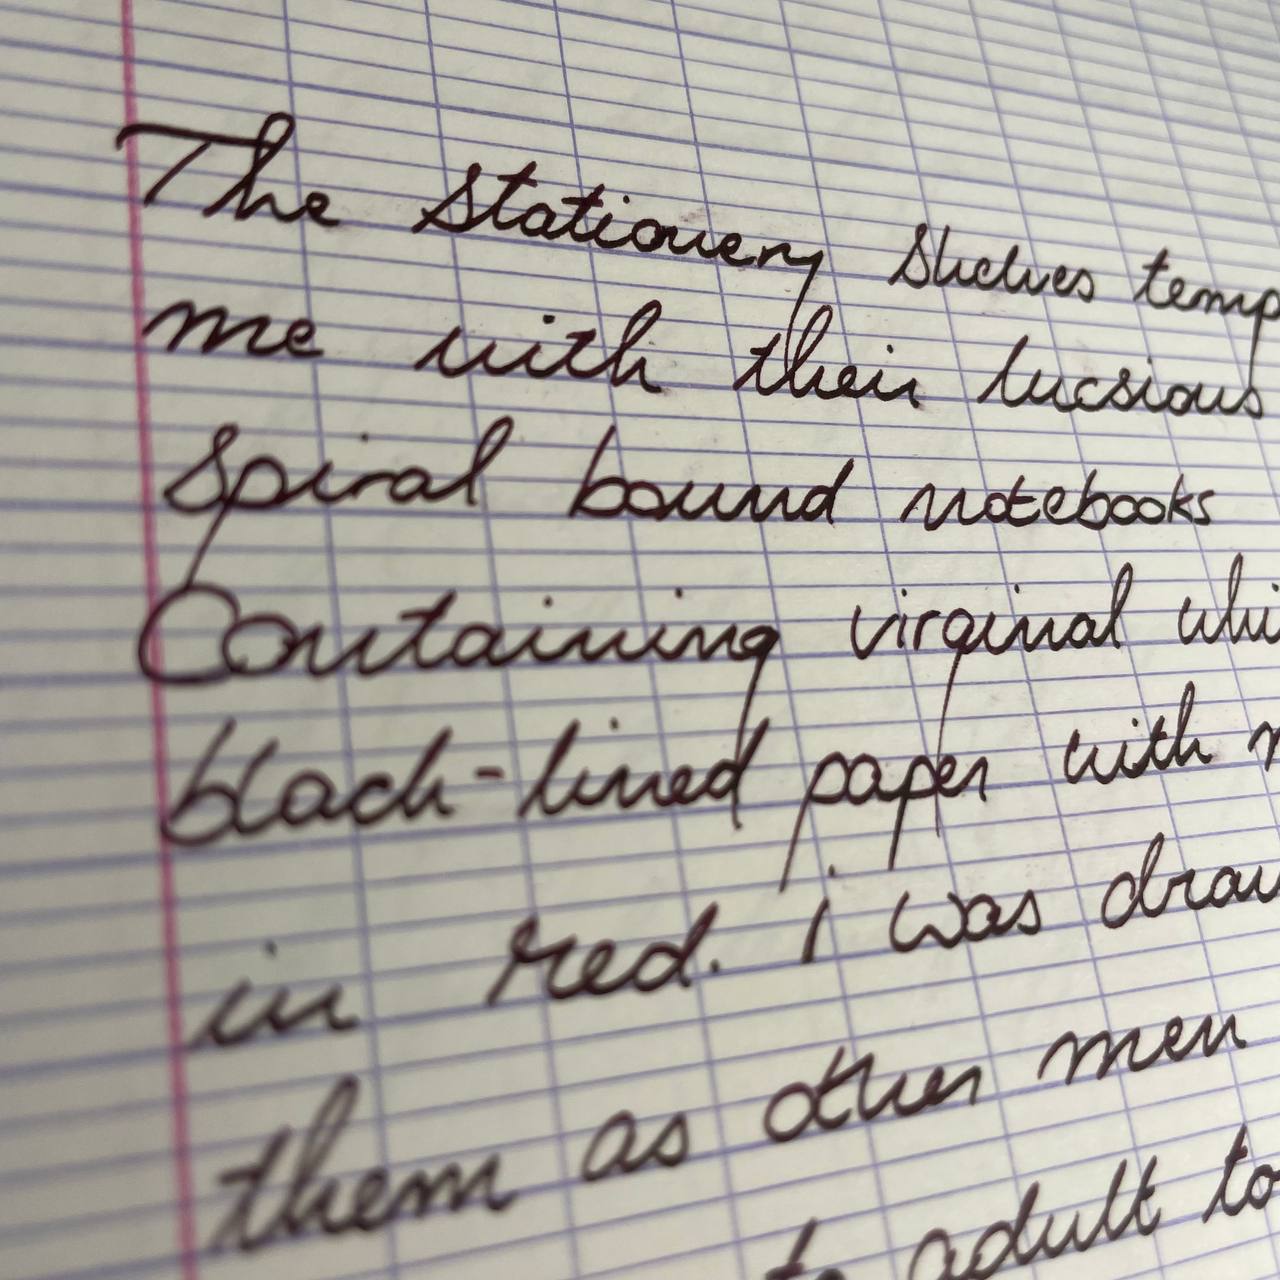 The stationery shelves temp
me with their lucsious
spiral bound notebooks
Containing virginal whi
black-lined paper with m
in red. i was draw
them as other men
to adult to